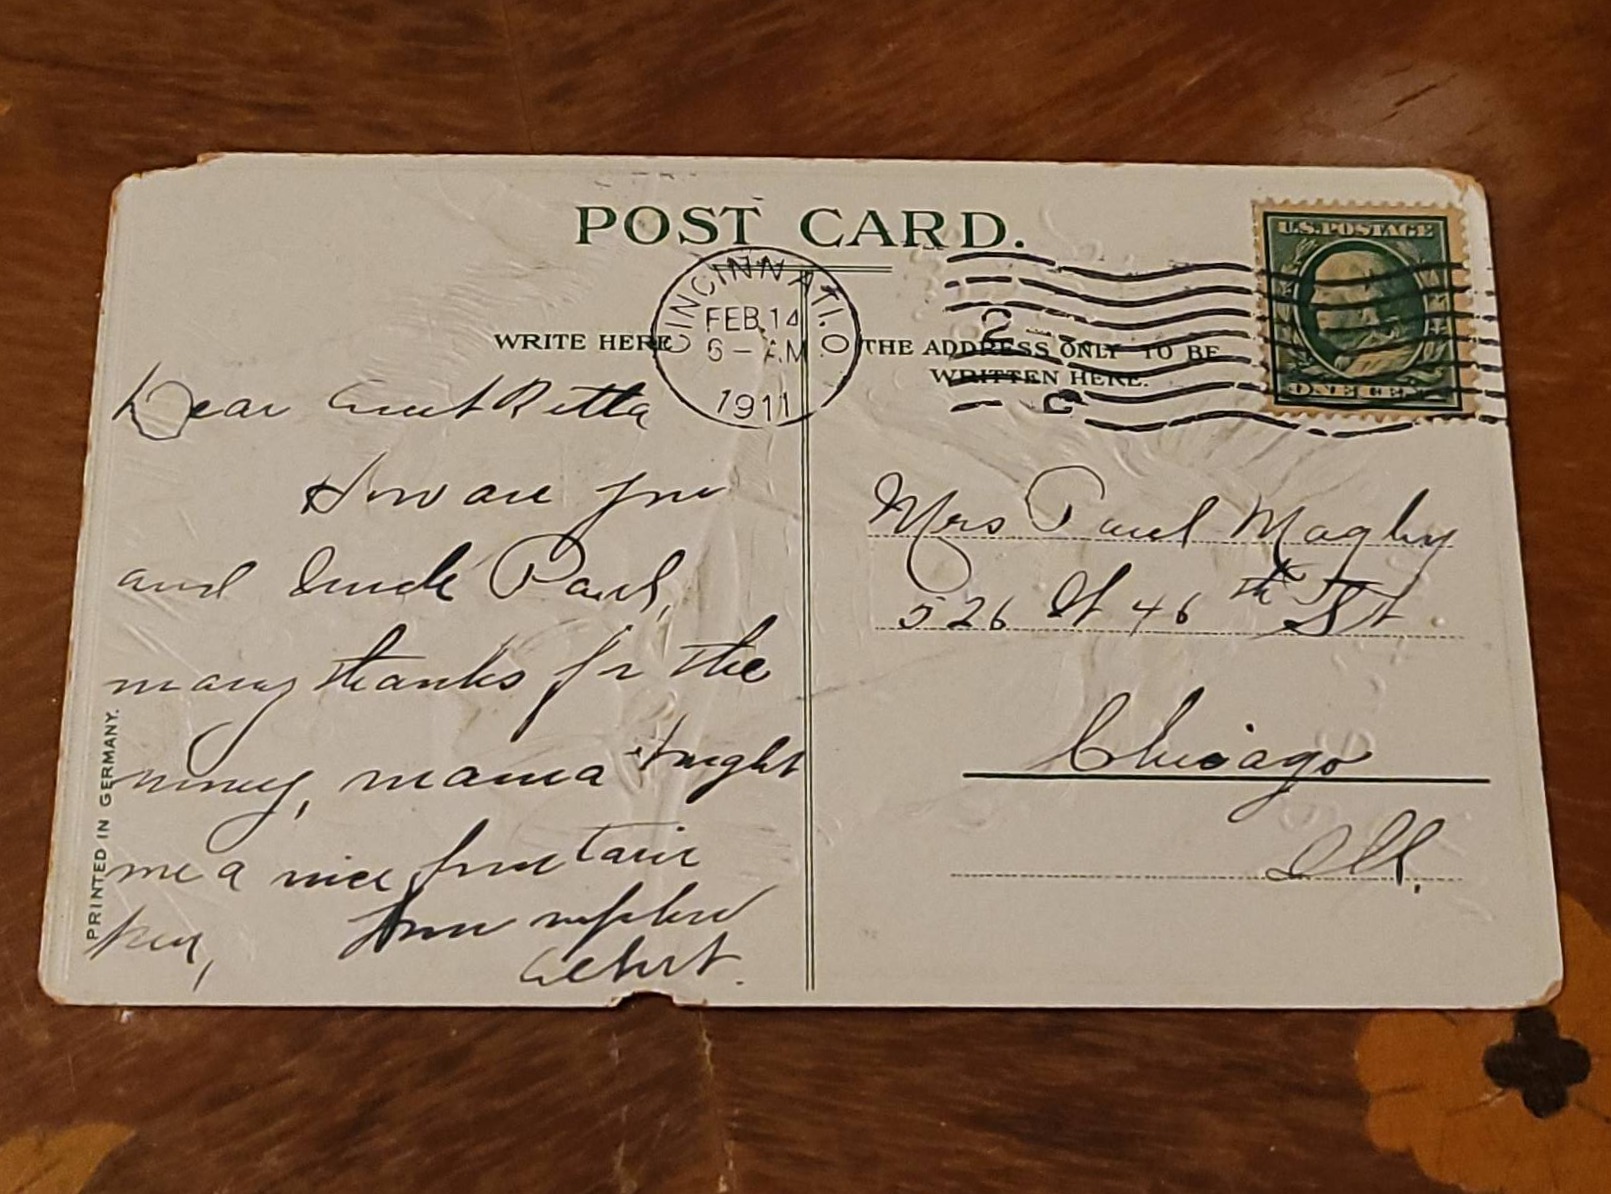 POST CARD.
U.S. POSTAGE
ONE CENT
CINCINNATI. O
FEB. 14
6 - AM
1911
2
C
WRITE HERE
THE ADDRESS ONLY TO BE
WRITTEN HERE.
Dear Aunt Retta
How are you
and Uncle Paul,
many thanks for the
money, mama bought
me a nice fountain
pen, from nephew
Albert.
Mrs Paul
526 W 46th St.
Chicago
Ill.
PRINTED IN GERMANY.